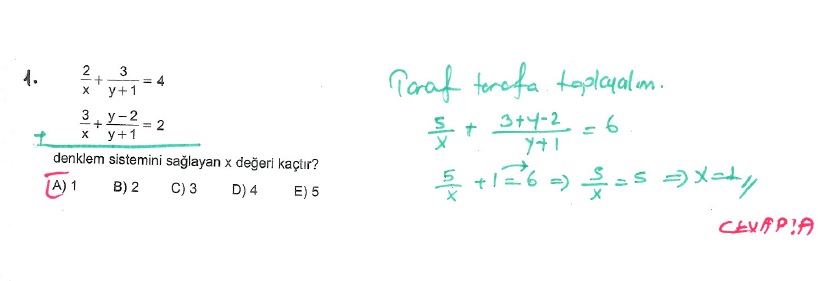 1. 2/x + 3/(y+1) = 4
3/x + (y-2)/(y+1) = 2
+
denklem sistemini sağlayan x değeri kaçtır?
A) 1 B) 2 C) 3 D) 4 E) 5
Taraf tarafa toplayalım.
5/x + (3+y-2)/(y+1) = 6
5/x + 1 = 6 ⇒ 5/x = 5 ⇒ x = 1 //
CEVAP: A